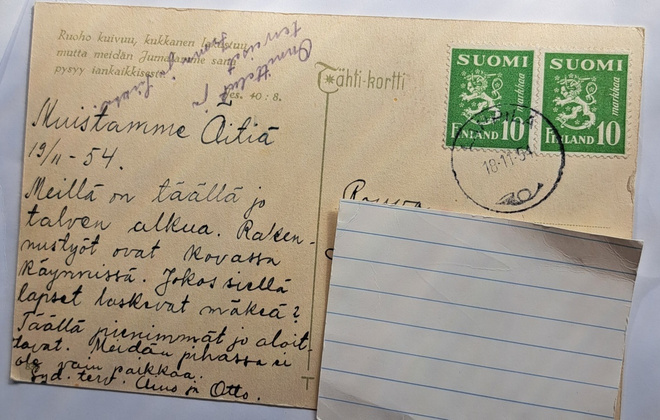 Ruoho kuivuu, kukkanen lakastuu,
mutta meidän Jumalamme sana
pysyy iankaikkisesti.
Jes. 40 : 8.
Onnittelut
terveiset
Tähti-kortti
SUOMI
markkaa
FINLAND 10
SUOMI
markkaa
FINLAND 10
18.11.54
Muistamme Äitiä
19/11 - 54.
Meillä on täällä jo
talven alkua. Raken-
nustyöt ovat kovassa
käynnissä. Jokos siellä
lapset laskevat mäkeä?
Täällä pienimmät jo aloit-
tavat. Meidän pihassa ei
ole vain paikkaa.
Syd. terv. Aino ja Otto.
Rouva